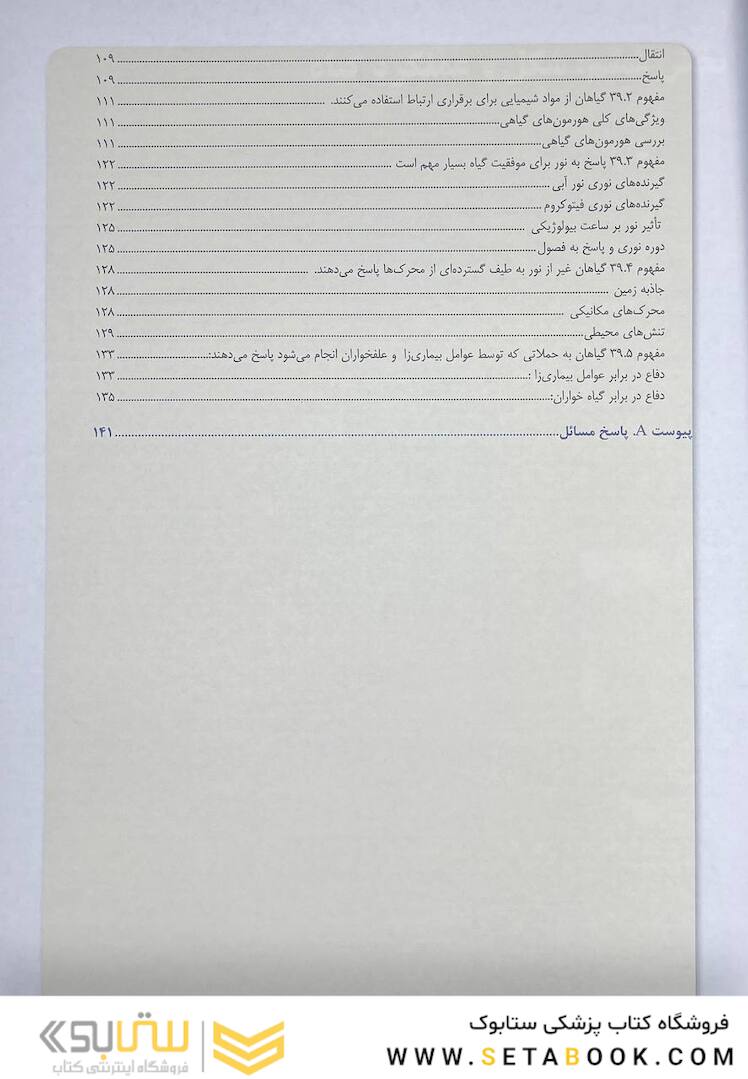 انتقال ۱۰۹
پاسخ ۱۰۹
مفهوم ۳۹.۲ گیاهان از مواد شیمیایی برای برقراری ارتباط استفاده می‌کنند. ۱۱۱
ویژگی‌های کلی هورمون‌های گیاهی ۱۱۱
بررسی هورمون‌های گیاهی ۱۱۱
مفهوم ۳۹.۳ پاسخ به نور برای موفقیت گیاه بسیار مهم است ۱۲۲
گیرنده‌های نوری نور آبی ۱۲۲
گیرنده‌های نوری فیتوکروم ۱۲۲
تأثیر نور بر ساعت بیولوژیکی ۱۲۵
دوره نوری و پاسخ به فصول ۱۲۵
مفهوم ۳۹.۴ گیاهان غیر از نور به طیف گسترده‌ای از محرک‌ها پاسخ می‌دهند. ۱۲۸
جاذبه زمین ۱۲۸
محرک‌های مکانیکی ۱۲۸
تنش‌های محیطی ۱۲۹
مفهوم ۳۹.۵ گیاهان به حملاتی که توسط عوامل بیماری‌زا و علفخواران انجام می‌شود پاسخ می‌دهند: ۱۳۳
دفاع در برابر عوامل بیماری‌زا : ۱۳۳
دفاع در برابر گیاه خواران: ۱۳۵
پیوست A. پاسخ مسائل ۱۴۱
فروشگاه کتاب پزشکی ستابوک
WWW.SETABOOK.COM
ستابوک
فروشگاه اینترنتی کتاب